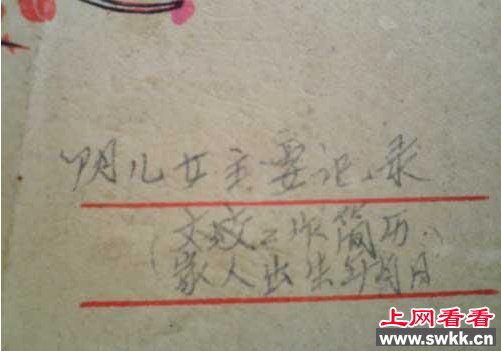 明儿女主要记录
(文蛟工作简历、
家人出生年月日
上网看看
www.swkk.cn